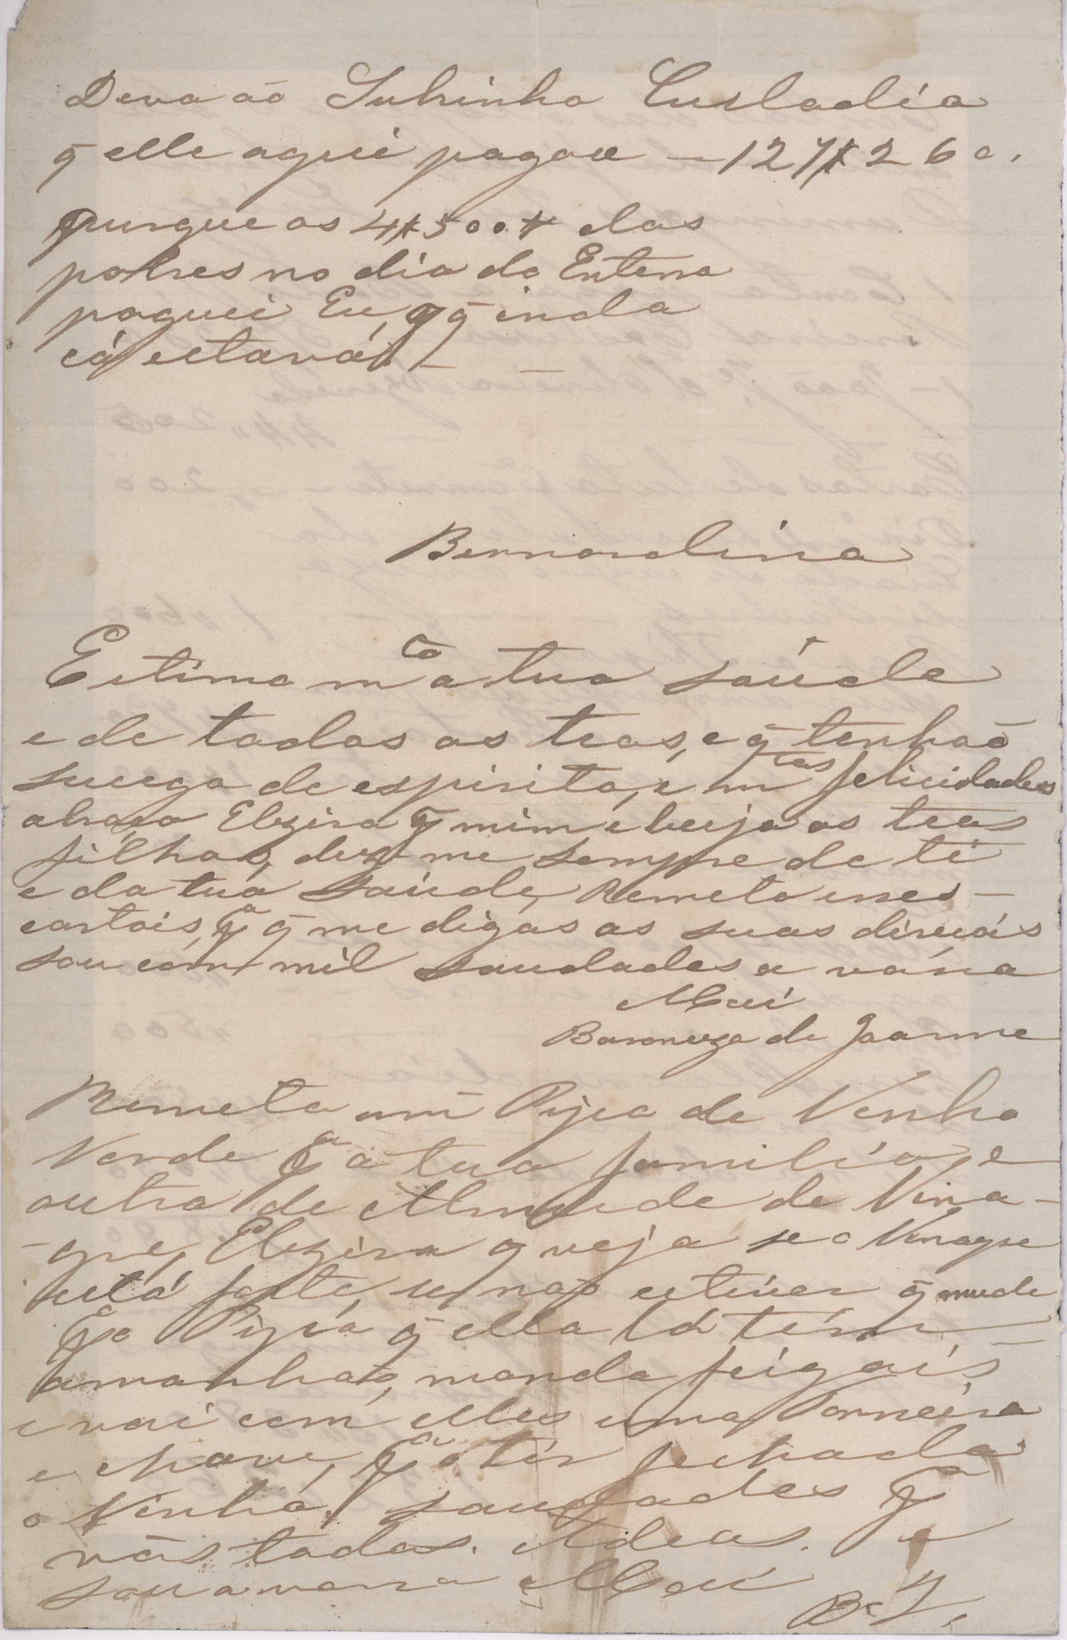 Devo ao Subinho Custodia
q̃ elle aqui pagou – 127$260.
purque os 4$500 dos
pobres no dia do Enterro
paguei Eu, q̃ inda
cá estavá
Bernardina
Estimo mto a tua saúde
e de todos os teos, e q̃ tenhão
sucego de espirito, e mtas felicidades
abraça Elzira por mim e beija os teus
filhos, diz me sempre de ti
e da tua saúde, Remeto esses
cartois, pa q̃ me digas as suas
sou com mil saudades a vosa
Mai
Baroneza de Joanne
Remeto um Pipa de Vinho
Verde pa a tua familia e
outra de Almude de Vina-
-gre, Elzira q̃ veja se o Vinagre
está forte, se não estiver q̃ mude
pa Pipa, q̃ ella lá tem
amanhã, manda feigois
e vai com elles uma Torneira
e chave, pa ter fechado
o Vinho, saudades pa
vós todos. Adeos. e
sou a vossa Mai
B. J.